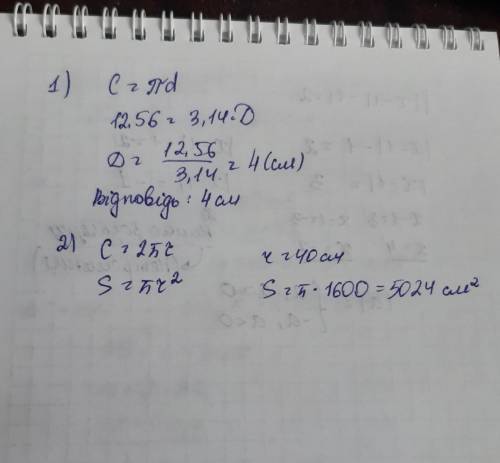 1) C = πd
12,56 = 3,14·D
D = 12,56 / 3,14 = 4 (см)
Відповідь: 4 см
2) C = 2πr r = 40 см
S = πr² S = π · 1600 = 5024 см²